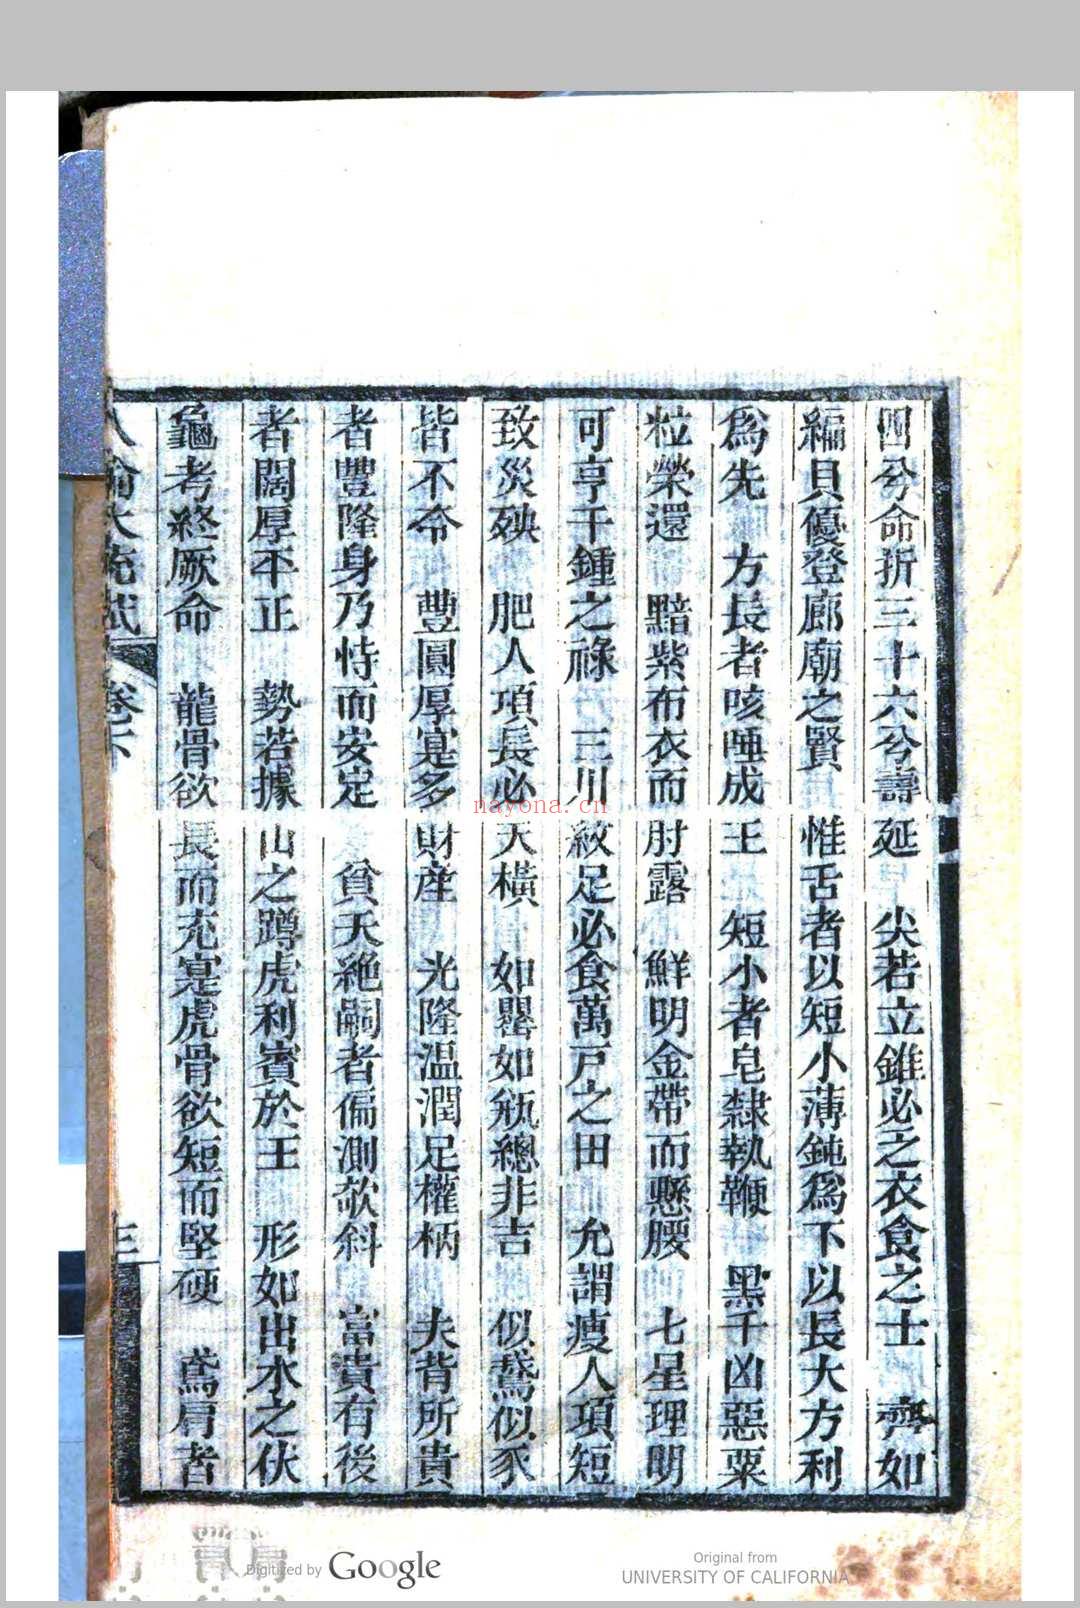 四兮命折三十六兮壽延 尖若立錐必之衣食之士 齊如
編貝優登廊廟之賢 惟舌者以短小薄鈍為下以長大方利
為先 方長者咳唾成王 短小者皂隸執鞭 黑千凶惡粟
粒榮還 黯紫布衣而肘露 鮮明金帶而懸腰 七星理明
可享千鍾之祿 三川紋足必食萬戸之田 允謂瘦人項短
致災殃 肥人項長必夭橫 如罌如瓶總非吉 似鵞似豕
皆不令 豐圓厚寔多財産 光隆温潤足權柄 夫背所貴
者豐隆身乃恃而安定 貧夭絶嗣者偏測欹斜 富貴有後
者闊厚平正 勢若據山之蹲虎利賓於王 形如出水之伏
龜考終厥命 龍骨欲長而充寔虎骨欲短而堅硬 鳶肩者
人倫大統賦 卷下 三
nayona.cn
Digitized by Google
Original from
UNIVERSITY OF CALIFORNIA